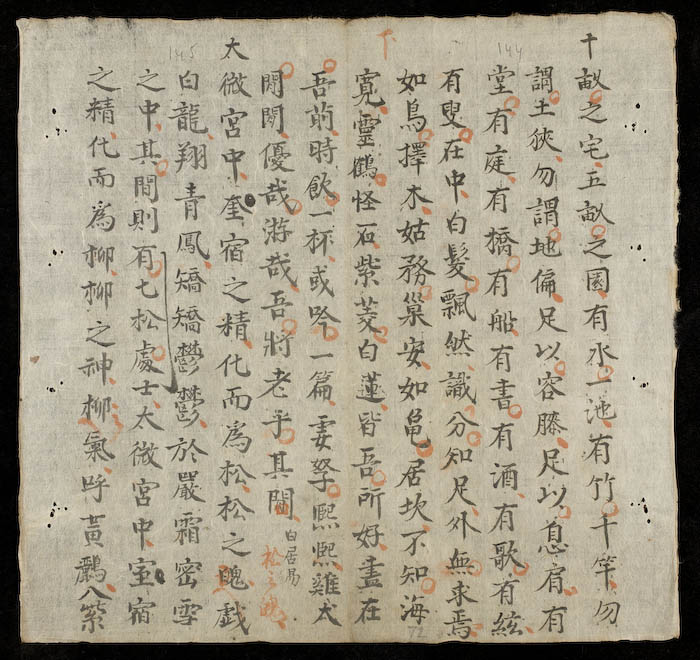 十畝之宅五畝之園有水一池有竹千竿勿
謂土狹勿謂地偏足以容膝足以息肩有
堂有庭有橋有船有書有酒有歌有絃
有叟在中白髮飄然識分知足外無求焉
如鳥擇木姑務巢安如龜居坎不知海
寬靈鶴怪石紫菱白蓮皆吾所好盡在
吾前時飲一杯或吟一篇妻孥熙熙雞犬
閑閑優哉游哉吾將老乎其間 白居易
松之魄
太微宮中奎宿之精化而為松松之魄戲
白龍翔青鳳矯矯鬱鬱於嚴霜密雪
之中其間則有七松處士太微宮中室宿
之精化而為柳柳之神柳氣呼黃鸝入紫
下
144
145
72